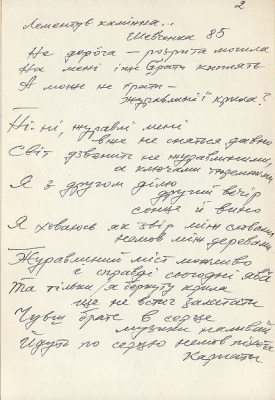 2
Лементує камінна...
Шевченка 85
Не дорога – розрита могила
На мені іще брати кимать
А може не брати –
журавлині крила?
Ні-ні, журавлі мені
вже не сняться давно
Світ дзвонить не журавлиним,
а ключами тюремними
Я з другом ділю
другий вечір
сонце й вино
Я ховаюсь як звір між словами
немов між деревами
Журавлиний міст можливо
є справді сьогодні явă
Та тільки я боргуту крила
ще не встиг заметати
Чуєш брате в серце
музики наливай
Йдуть по серцю немов піхота
Карпати